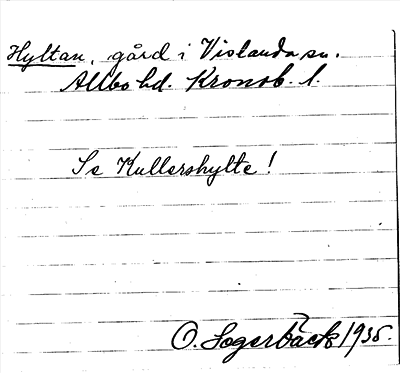 Hyltan, gård i Vislanda sn.
Allbo hd. Kronob. l.
Se Kullershylte!
O. Sagerbäck 1935.